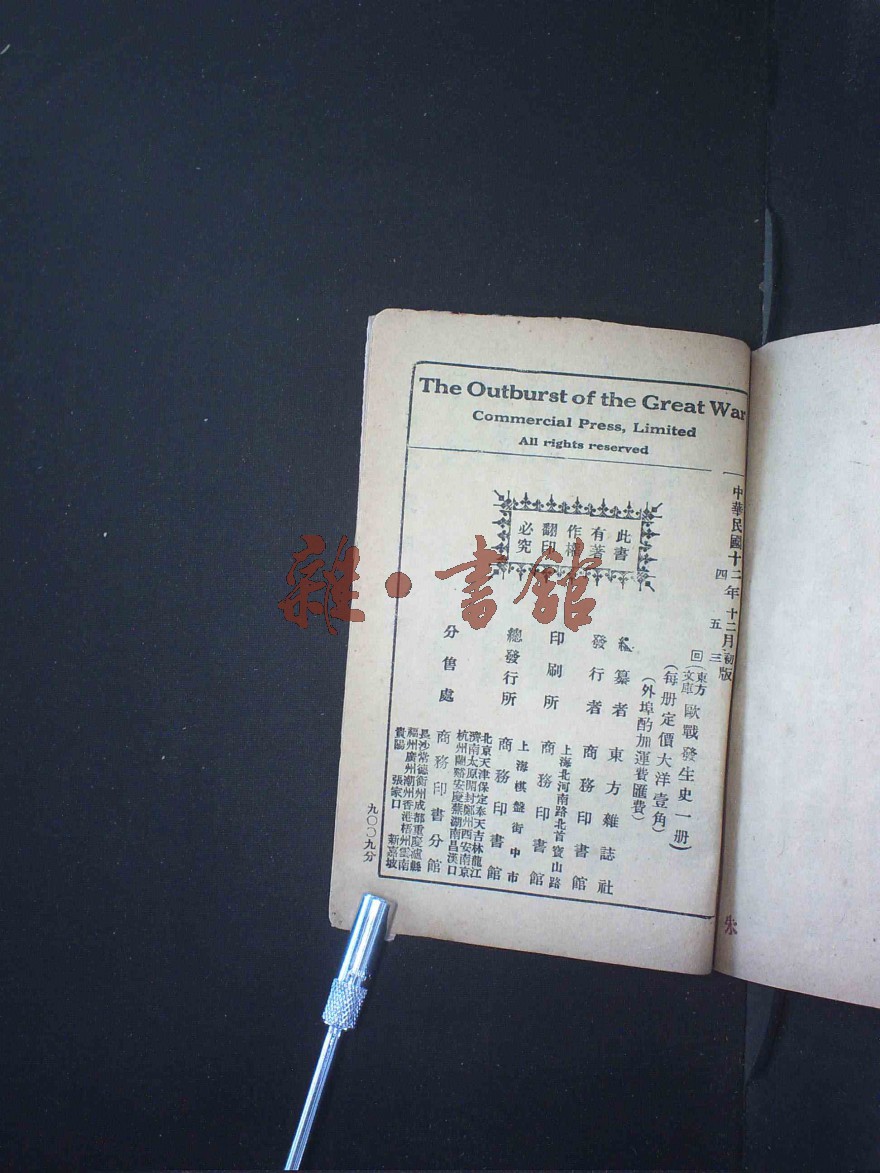 The Outburst of the Great War
Commercial Press, Limited
All rights reserved
中華民國十二年十二月初版
四 五 三
回(東方文庫)歐戰發生史一册
(每册定價大洋壹角)
(外埠酌加運費匯費)
此書
有著
作權
翻印
必究
編纂者 東方雜誌社
發行者 商務印書館
印刷所 上海北河南路北首寶山路 商務印書館
總發行所 上海棋盤街中市 商務印書館
分售處 商務印書分館
北京天津保定奉天吉林龍江
濟南太原開封鄭州西安南京
杭州蘭谿安慶蕪湖南昌漢口
長沙常德衡州成都重慶瀘縣
福州廣州潮州香港梧州雲南
貴陽 張家口 新嘉坡
九〇〇九分
朱
雜·書館